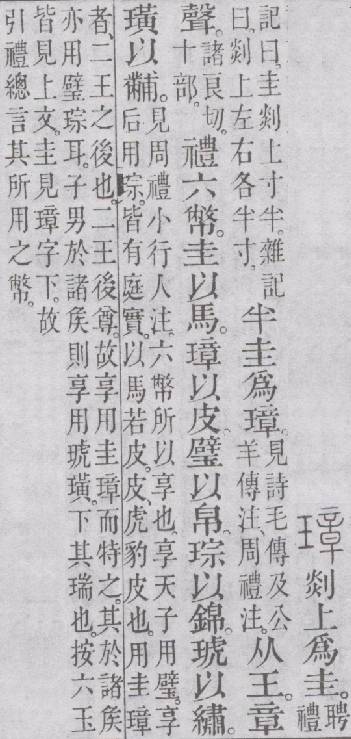 璋 剡上爲圭。聘禮
記曰、圭剡上寸半。雜記曰、剡上左右各半寸。半圭爲璋。見詩毛傳及公羊傳注、周禮注。从王。章
聲。諸良切。十部。禮六幣。圭以馬。璋以皮。璧以帛。琮以錦。琥以繡。
璜以黼。見周禮小行人注。六幣所以享也。享天子用璧。享后用琮。皆有庭實。以馬若皮。皮、虎豹皮也。用圭璋
者、二王之後也。二王後尊。故享用圭璋而特之。其於諸矦亦用璧琮耳。子男於諸矦則享用琥璜。下其瑞也。按六玉
皆見上文。圭見璋字下。故引禮總言其所用之幣。